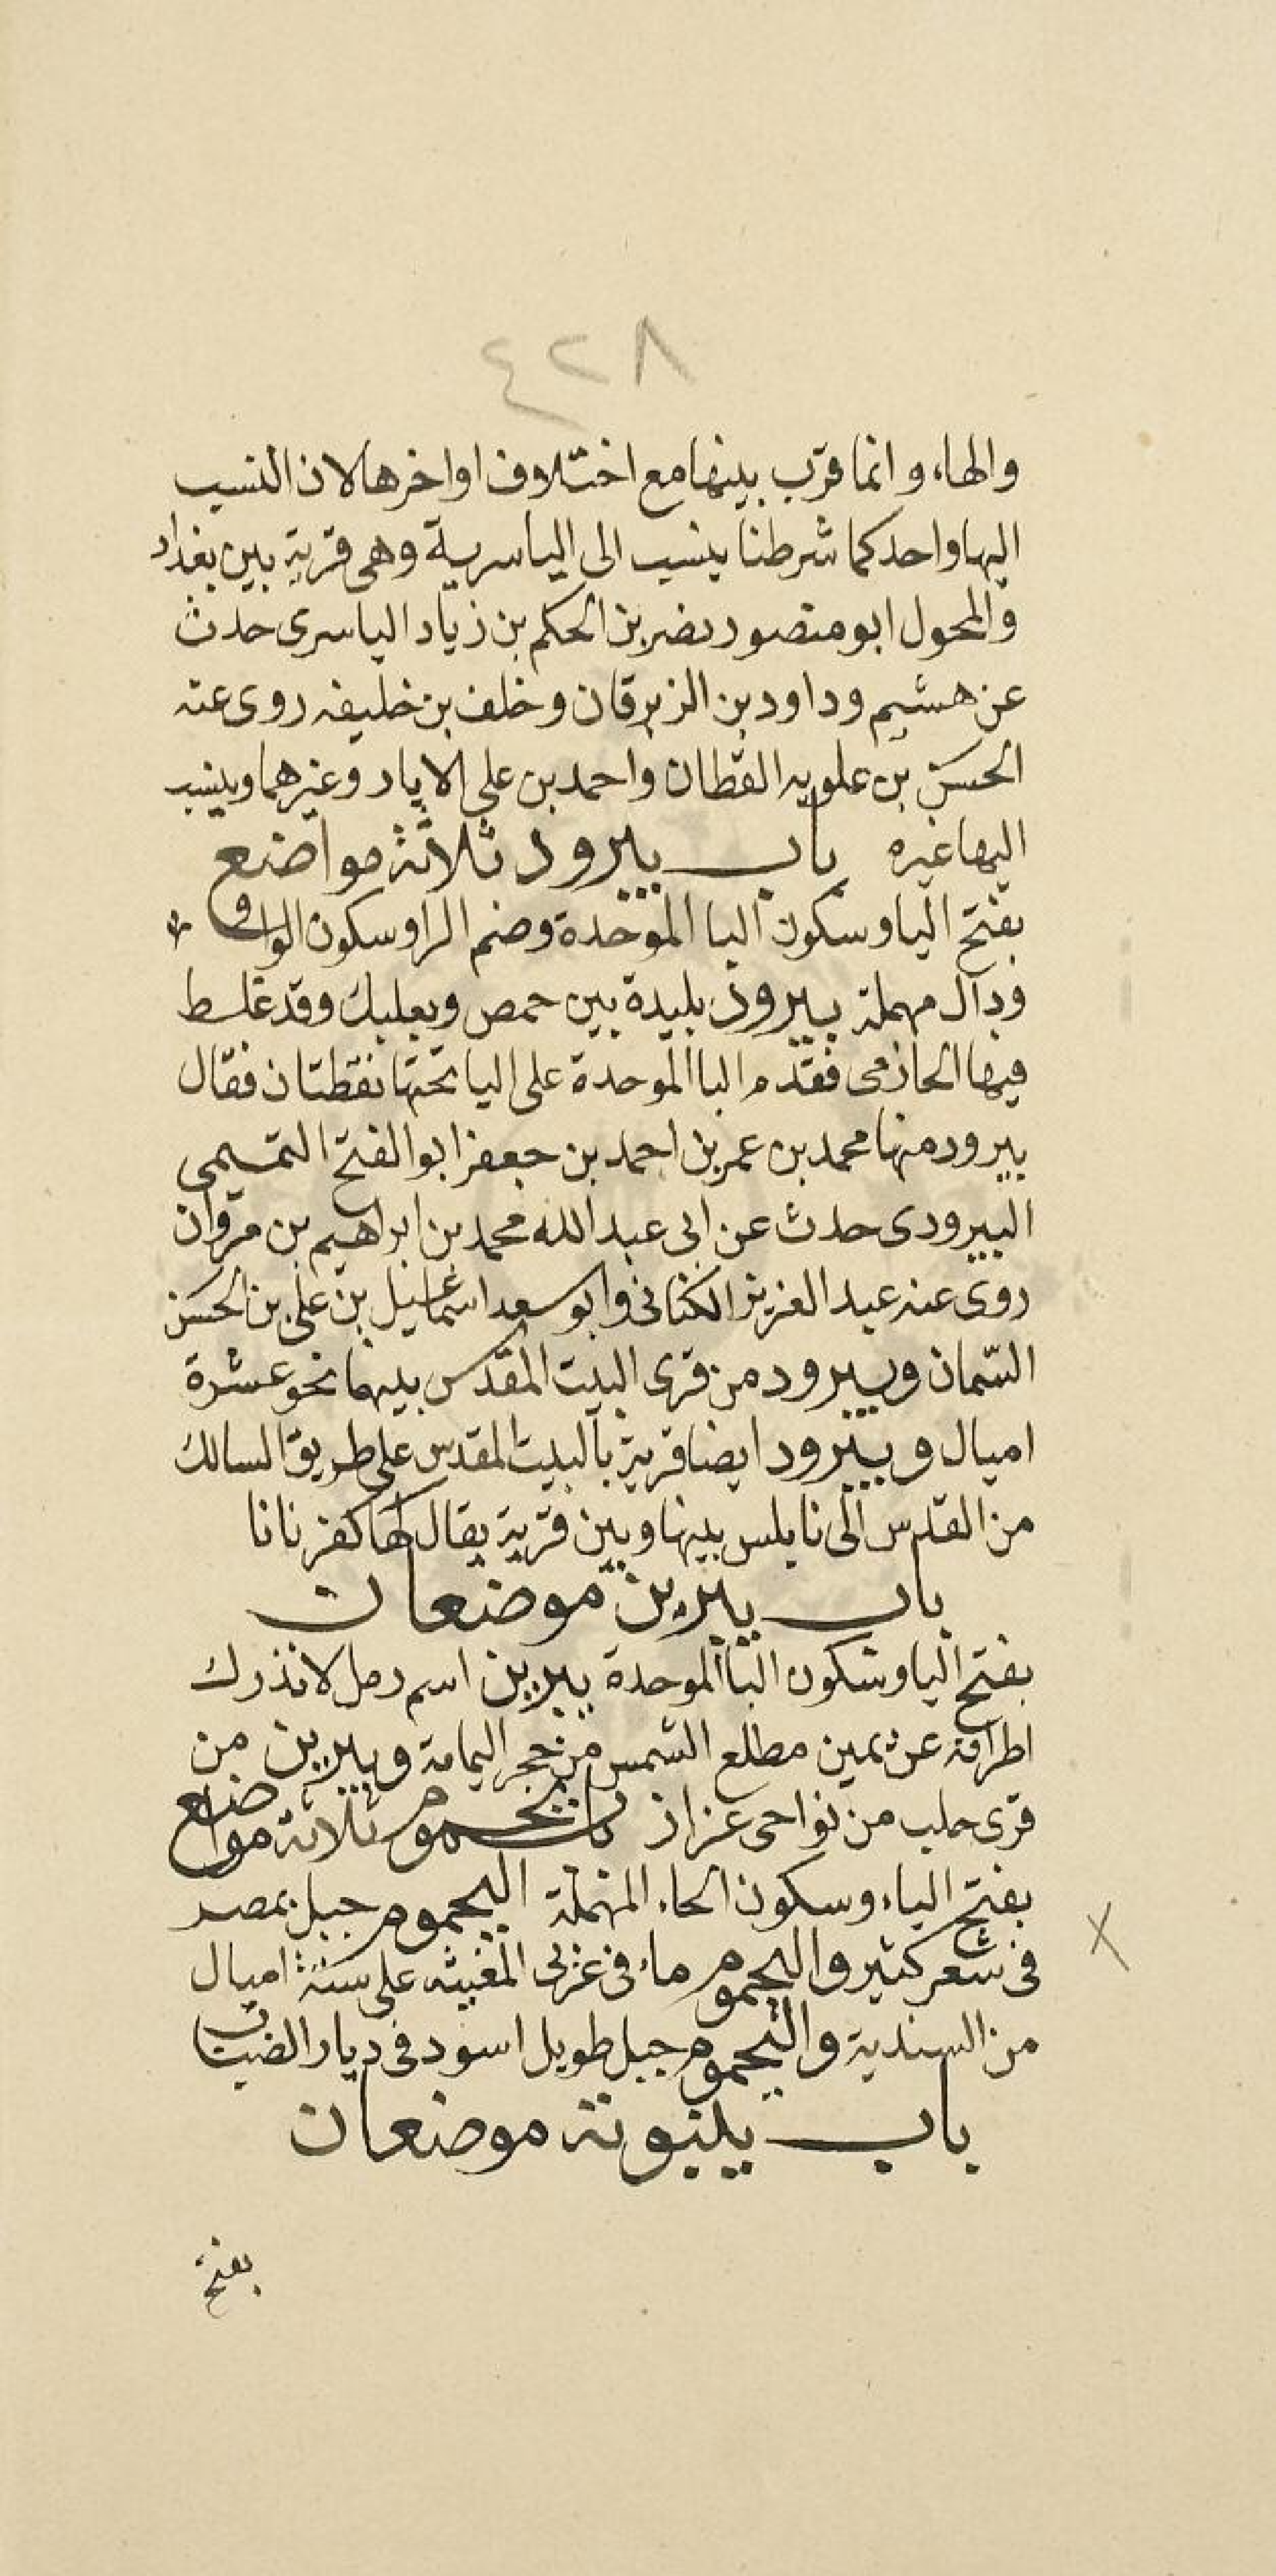 ٤٢٨
والهاء وانما قرب بينها مع اختلاف اواخرها لان النسب
اليها واحد كما شرطنا ينسب الى الياسرية وهى قرية بين بغداد
والمحول ابو منصور نصر بن الحكم بن زياد الياسرى حدث
عن هشيم وداود بن الزبرقان وخلف بن خليفه روى عنه
الحسن بن علويه القطان واحمد بن على الابار وغيرهما وينسب
اليها غيره باب يبرود ثلاثة مواضع
بفتح اليا وسكون البا الموحدة وضم الرا وسكون الواو
ودال مهملة يبرود بليدة بين حمص وبعلبك وقد غلط
فيها الحازمى فقدم البا الموحدة على اليا تحتها نقطتان فقال
بيرود منها محمد بن عمر بن احمد بن جعفر ابو الفتح التميمى
البيرودى حدث عن ابى عبد الله محمد بن ابراهيم بن مروان
روى عنه عبد العزيز الكتانى وابو سعد اسماعيل بن على بن الحسن
السّمان ويبرود من قرى البيت المقدس بينهما نحو عشرة
اميال ويبرود ايضا قرية بالبيت المقدس على طريق السالك
من القدس الى نابلس بينها وبين قرية يقال لها كفر نانا
باب يبرين موضعان
بفتح اليا وسكون البا الموحدة يبرين اسم رمل لا تدرك
اطرافه عن يمين مطلع الشمس من حجر اليمامة ويبرين من
قرى حلب من نواحى عزاز باب يحموم ثلاثة مواضع
بفتح الياء وسكون الحاء المهملة اليحموم جبل بمصر
فى شعر كثير واليحموم ماء فى غربى المغيثه على ستة اميال
من السندية واليحموم جبل طويل اسود فى ديار الضباب
باب يلبونة موضعان
بفتح